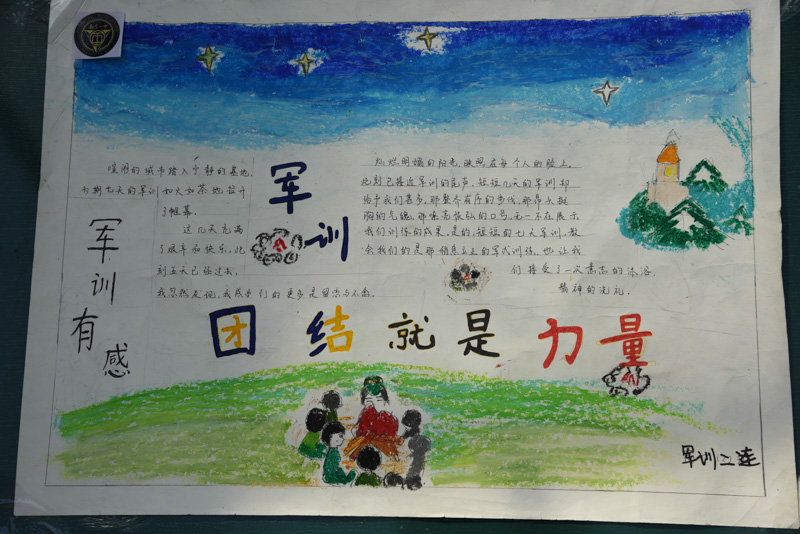 军训有感
喧闹的城市踏入宁静的基地,
为期七天的军训如火如荼地拉开
了帷幕。
这几天充满
了艰辛和快乐,此
刻五天已经过去,
我忽然发现,我感
们的更多是留恋与不舍。
军训
灿烂明媚的阳光,映照在每个人的脸上。
此刻已接近军训的尾声,短短几天的军训却
给予我们甚多,那整齐有序的步伐,那昂头挺
胸的气魄,那嘹亮
的口号,无一不在展示
我们训练的成果,是的,短短的七天军训,教
会我们的是那
的军式训练,也让我
们接受了一次意志的沐浴,
精神的洗礼。
团结就是力量
军训二连